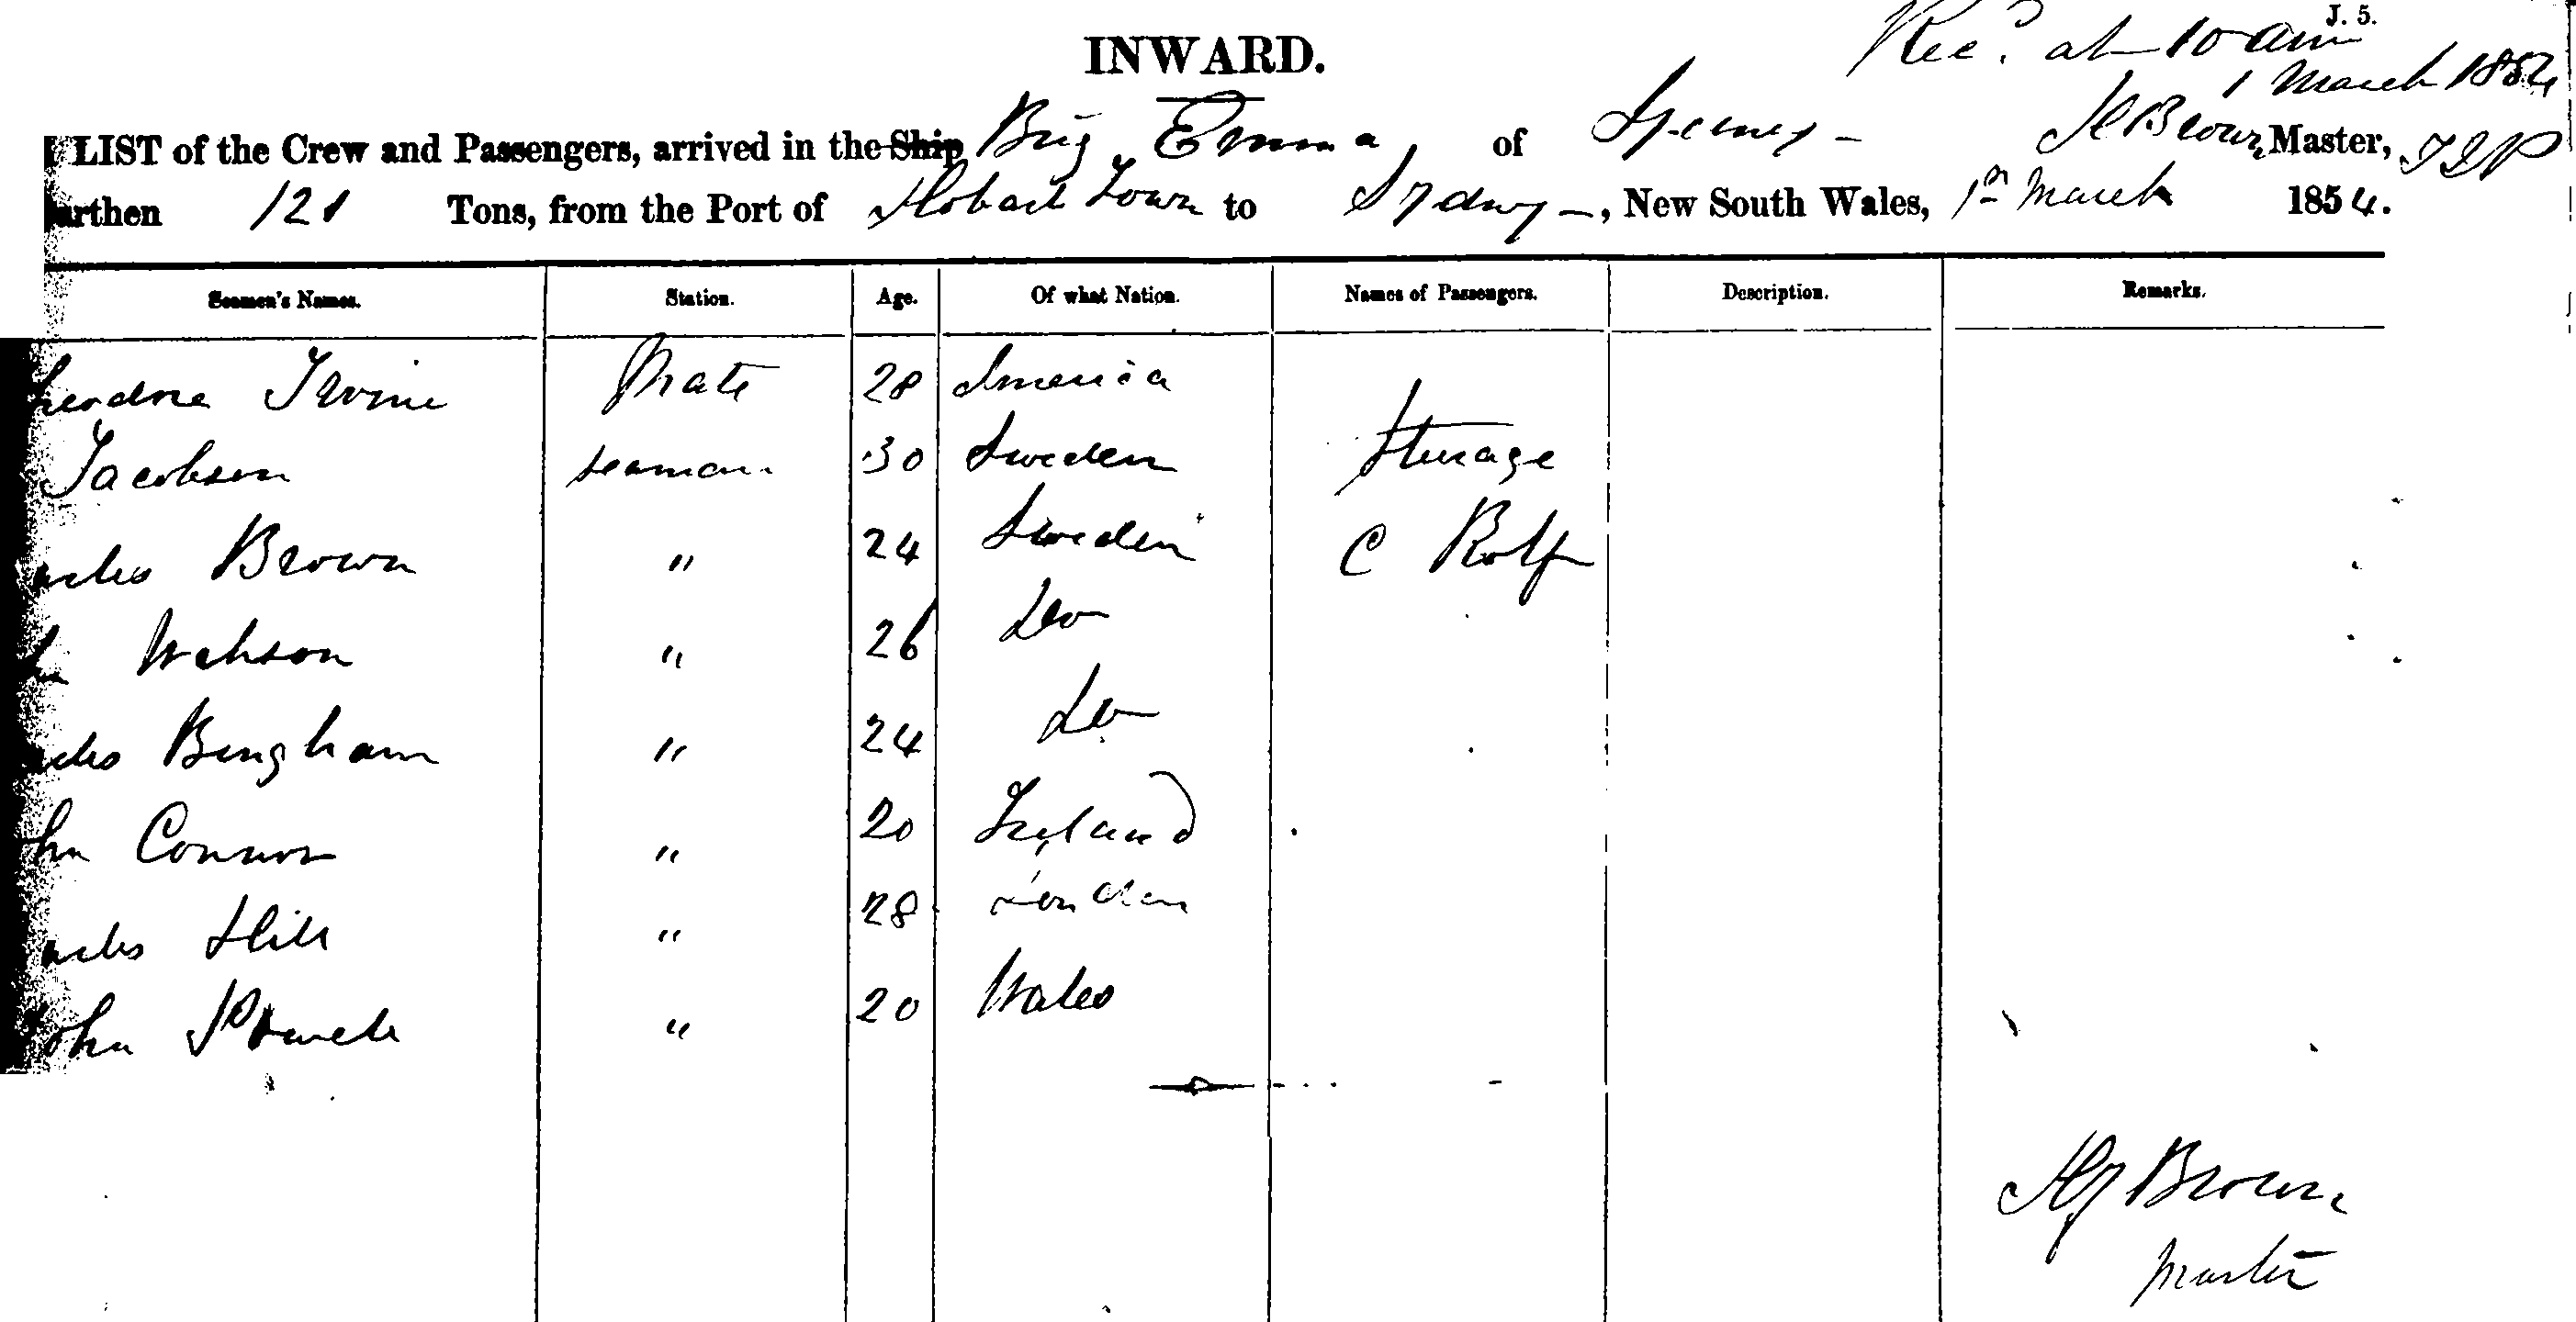 J. 5.
Rec.d at 10 am
1 March 1854
INWARD.
LIST of the Crew and Passengers, arrived in the Ship Brig Emma of Sydney - Brown, Master,
urthen 121 Tons, from the Port of Hobart Town to Sydney -, New South Wales, 1st March 1854.
Seamen's Names. Station. Age. Of what Nation. Names of Passengers. Description. Remarks.
heodore Irvine Mate 28 America
Jacobson seaman 30 Sweden Sterage
arles Brown " 24 Sweden C Rolfe
Watson " 26 Do
arles Bingham " 24 Do
ohn Connor " 20 Ireland
arles Hill " 28 London
John Powell " 20 Wales
Brown
Master